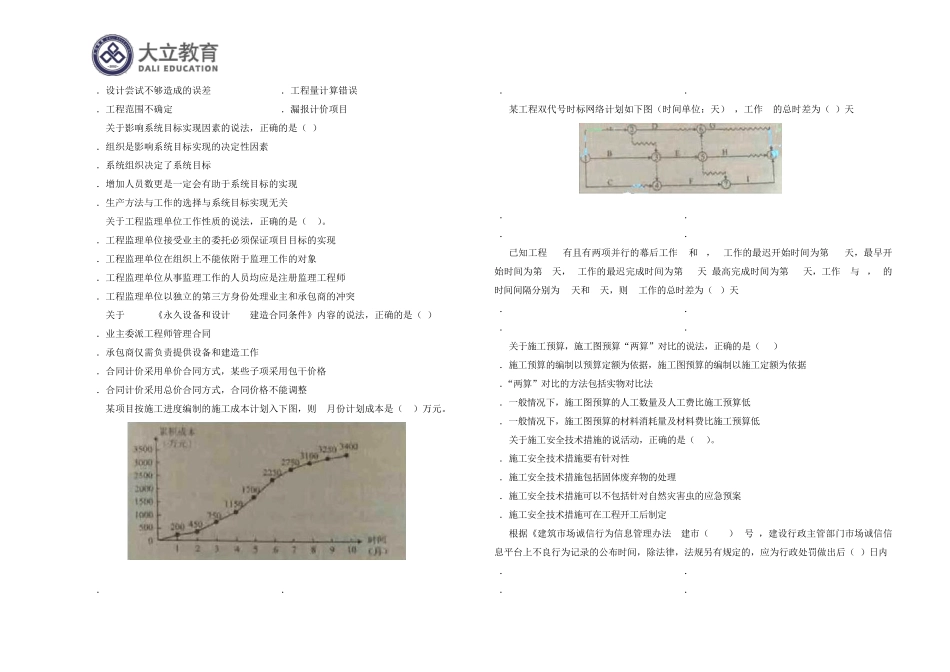 大立教育
DALI EDUCATION
．设计尝试不够造成的误差 ．工程量计算错误
．工程范围不确定 ．漏报计价项目
关于影响系统目标实现因素的说法，正确的是（ ）
．组织是影响系统目标实现的决定性因素
．系统组织决定了系统目标
．增加人员数更是一定会有助于系统目标的实现
．生产方法与工作的选择与系统目标实现无关
关于工程监理单位工作性质的说法，正确的是（ ）。
．工程监理单位接受业主的委托必须保证项目目标的实现
．工程监理单位在组织上不能依附于监理工作的对象
．工程监理单位从事监理工作的人员均应是注册监理工程师
．工程监理单位以独立的第三方身份处理业主和承包商的冲突
关于 《永久设备和设计 建造合同条件》内容的说法，正确的是（ ）
．业主委派工程师管理合同
．承包商仅需负责提供设备和建造工作
．合同计价采用单价合同方式，某些子项采用包干价格
．合同计价采用总价合同方式，合同价格不能调整
某项目按施工进度编制的施工成本计划入下图，则 月份计划成本是（ ）万元。
累积成本
（万元）
3500
3000
2500
2000
1500
1000
500
0
200 450 750 1150 1700 2250 2750 3100 3250 3400
1 2 3 4 5 6 7 8 9 10
时间
（月）
． ．
． ．
某工程双代号时标网络计划如下图（时间单位；天），工作 的总时差为（ ）天
D G
B E H
C F I
． ．
． ．
已知工程 有且有两项并行的幕后工作 和 ， 工作的最迟开始时间为第 天，最早开
始时间为第 天， 工作的最迟完成时间为第 天 最高完成时间为第 天，工作 与 ， 的
时间间隔分别为 天和 天，则 工作的总时差为（ ）天
． ．
． ．
关于施工预算，施工图预算“两算”对比的说法，正确的是（ ）
．施工预算的编制以预算定额为依据，施工图预算的编制以施工定额为依据
．“两算”对比的方法包括实物对比法
．一般情况下，施工图预算的人工数量及人工费比施工预算低
．一般情况下，施工图预算的材料消耗量及材料费比施工预算低
关于施工安全技术措施的说活动，正确的是（ ）。
．施工安全技术措施要有针对性
．施工安全技术措施包括固体废弃物的处理
．施工安全技术措施可以不包括针对自然灾害虫的应急预案
．施工安全技术措施可在工程开工后制定
根据《建筑市场诚信行为信息管理办法 建市（ ） 号 ，建设行政主管部门市场诚信信
息平台上不良行为记录的公布时间，除法律，法规另有规定的，应为行政处罚做出后（ ）日内
． ．
． ．